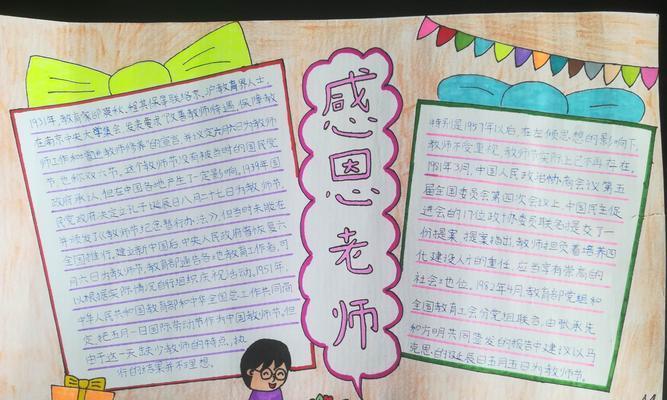 1931年,教育家邰爽秋、程其保等联络京、沪教育界人士,
在南京中央大学集会,发表要求"改善教师待遇,保障教
师工作和增进教师修养"的宣言,并议定六月六日为教师
节,也称双六节。这个教师节没有被当时的国民党
政府承认,但在中国各地产生了一定影响。1939年国
民党政府决定立孔子诞辰日八月二十七日为教师节,
并颁发了《教师节纪念暂行办法》,但当时未能在
全国推行。建立新中国后,中央人民政府曾恢复六
月六日为教师节,教育部通告各地教育工作者,可
以根据实际情况自行组织庆祝活动。1951年,
中华人民共中国教育部和中华全国总工作共同商
定,把五月一日国际劳动节作为中国教师节,但
由于这一天缺少教师的特点,执
行的结果并不理想。
感恩老师
特别是1957年以后,在左倾思想的影响下,
教师不受重视,教师节实际上已不再存在。
1981年3月,中国人民政治协商会议第五
届全国委员会第四次会议上,中国民主促
进会的17位政协委员联名提交了一
份提案。提案指出,教师担负着培养四
化建设人才的重任,应当享有崇高的
社会地位。1982年4月,教育部党组和
全国教育工会分党组联合,由张承先
和方明共同签发的报告中建议以马
克思的诞辰日五月五日为教师节。